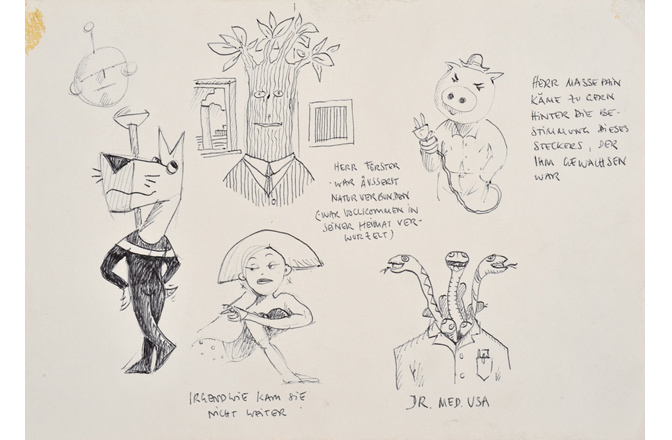 HERR FÖRSTER
WAR ÄUSSERST
NATURVERBUNDEN
(WAR VOLLKOMMEN IN
SEINER HEIMAT VER-
WURZELT)
HERR MASSEPAIN
KÄME ZU GERN
HINTER DIE BE-
STIMMUNG DIESES
STECKERS, DER
IHM GEWACHSEN
WAR
IRGENDWIE KAM SIE
NICHT WEITER
DR. MED. USA